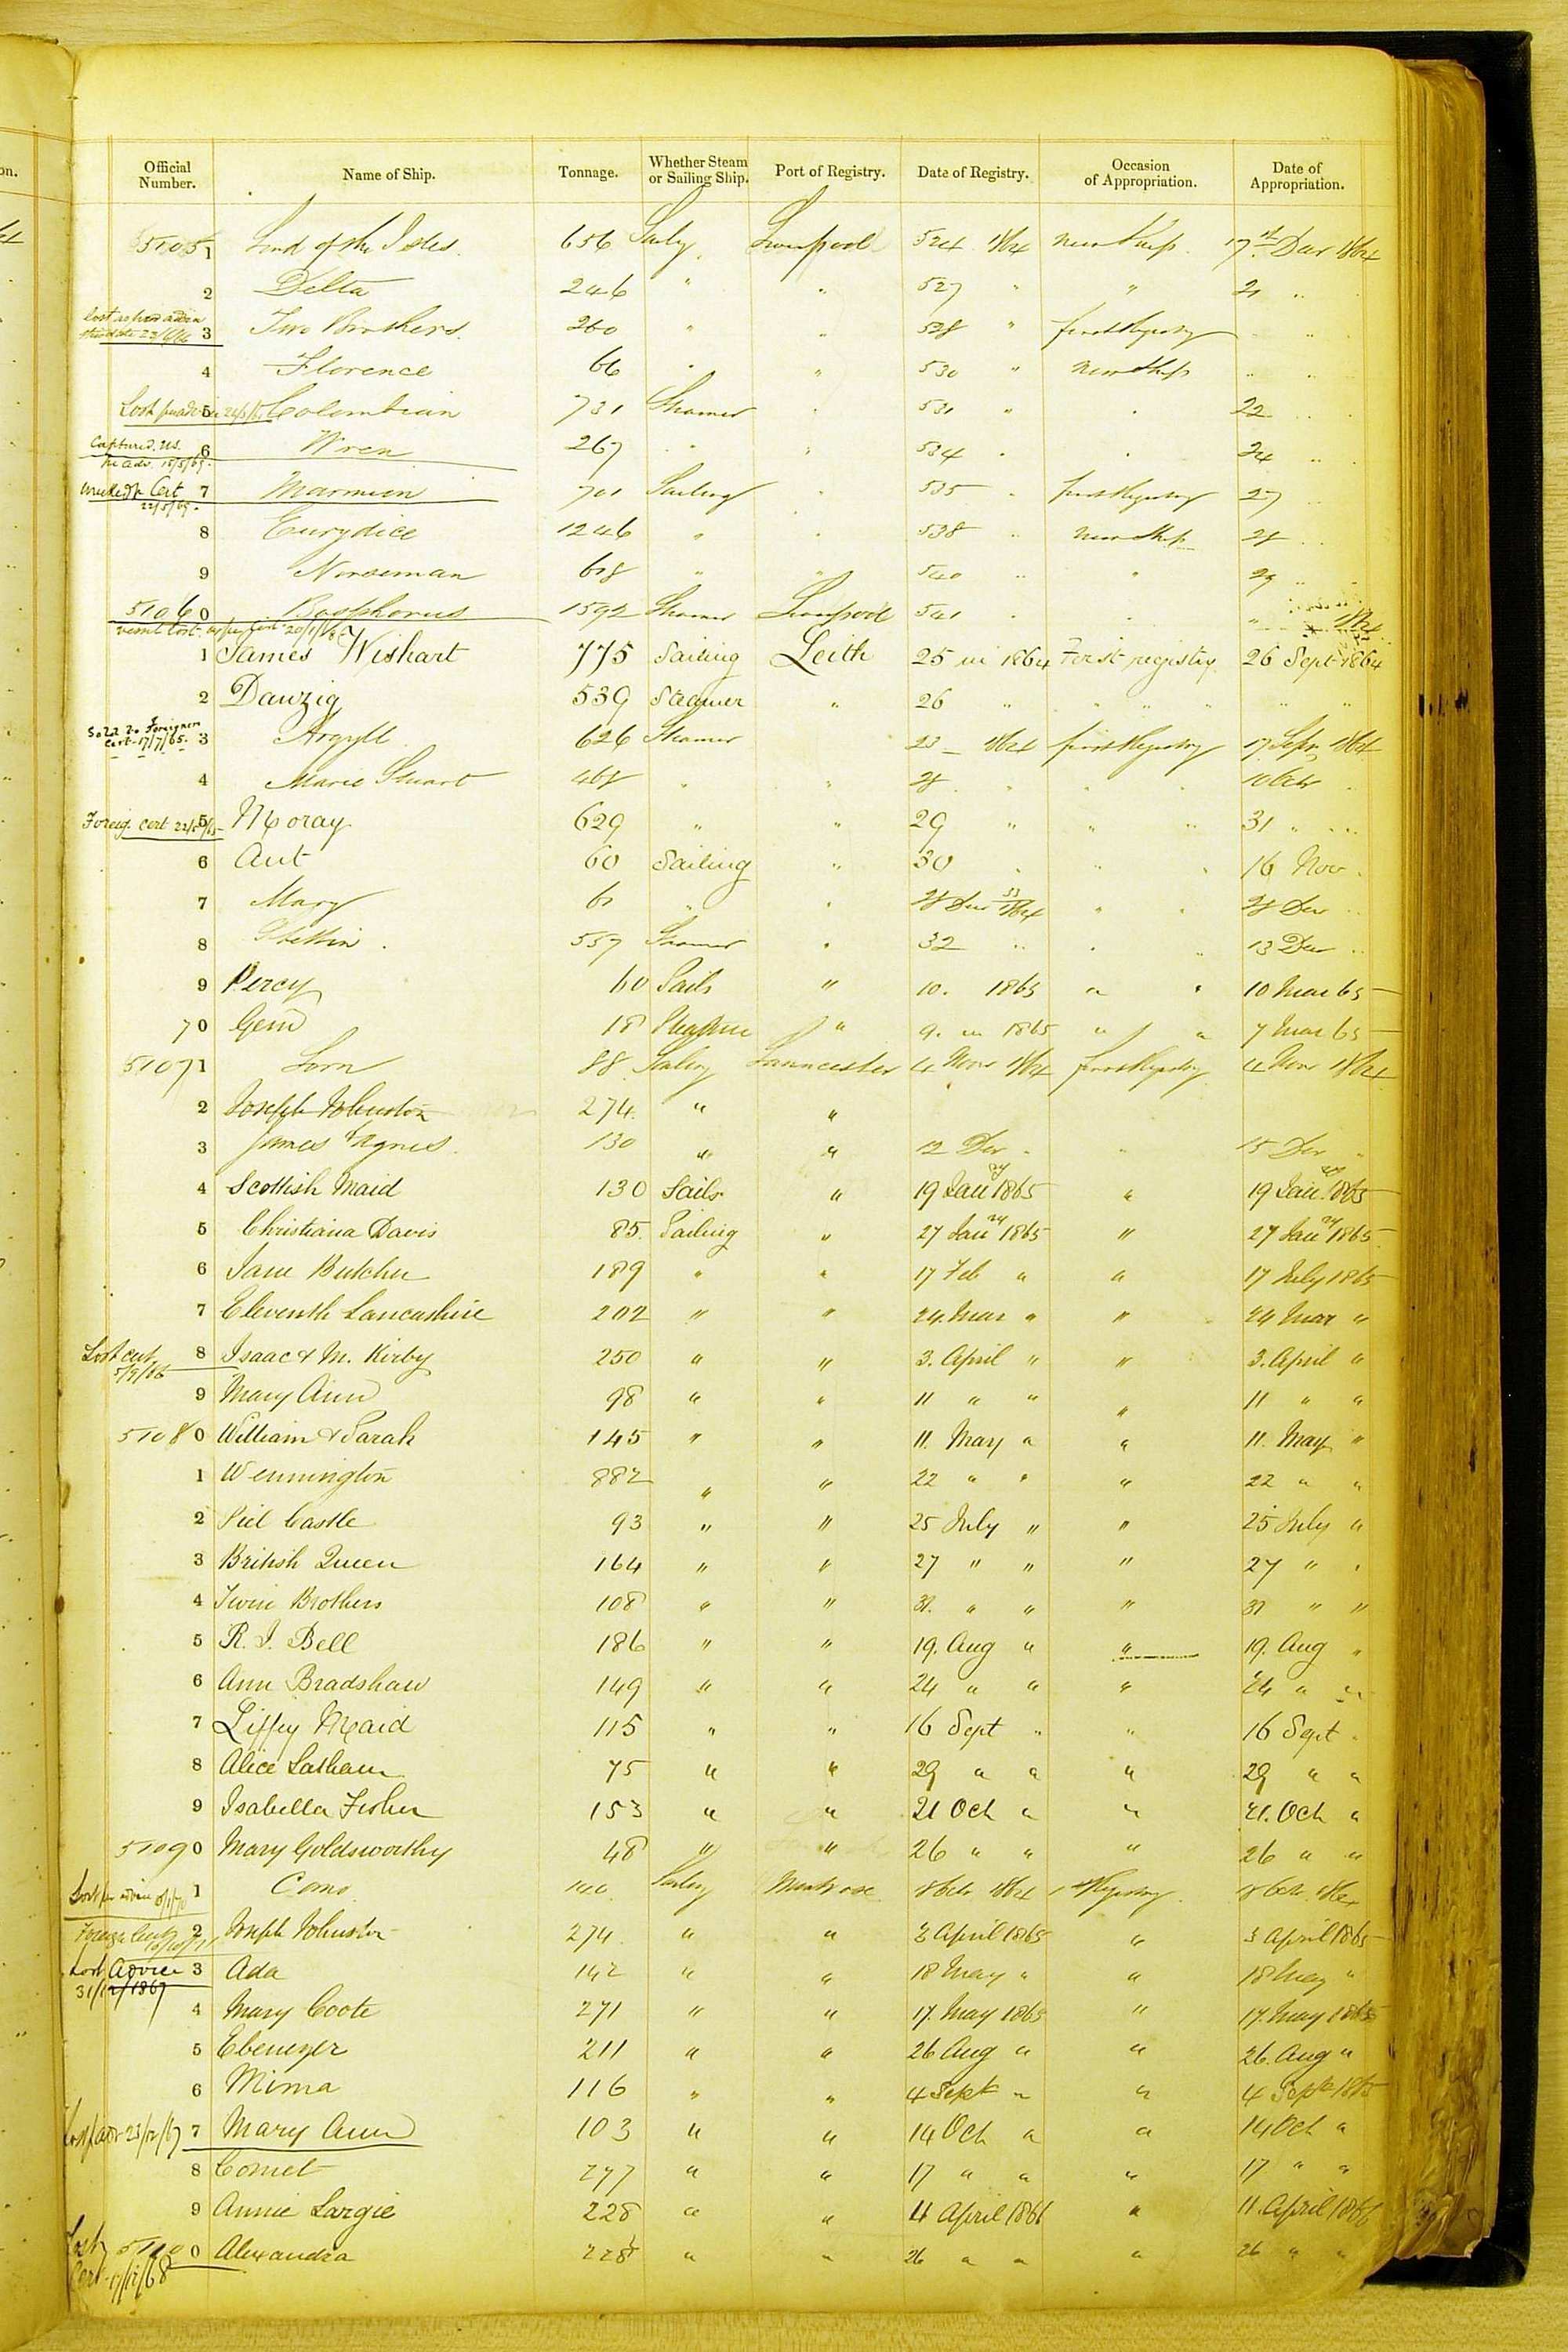 Official Number. Name of Ship. Tonnage. Whether Steam or Sailing Ship. Port of Registry. Date of Registry. Occasion of Appropriation. Date of Appropriation.
5105 1 Lord of the Isles. 656 Liverpool 524 1864 new Ship 17th 1864
2 Delta 246 " " 527 " " 21 "
3 Two Brothers. 260 " " 528 " first Registry
4 Florence 66 " " 530 " new Ship " "
5 Colombian 731 Steamer " 531 " " 22
Captured U.S. 6 Wren 267 " " 534 " " 24
pr Adv. 15/5/65.
Cert 7 Marmion 701 Sailing " 535 " first Registry 27
22/5/65.
8 Eurydice 1246 " " 538 " new Ship 28
9 Norseman 618 " " 540 " " 29
5106 0 Bosphorus 1592 Steamer Liverpool 541 " " " 1864
1 James Wishart 775 Sailing Leith 25 in 1864 First registry 26 Sept 1864
2 Danzig 539 Steamer " 26 " " " " "
Sold to Foreigners
Cert 17/7/65. 3 Argyll 626 Steamer 23 1864 first Registry 17 Sepr 1864
4 Marie Stuart 468 " " 28 " " 10 Octr
Foreig. Cert 5 Moray 629 " " 29 " " " 31 "
6 Ant 60 Sailing " 30 " " " 16 Nov.
7 Mary 61 " " 28 Dec 1864 " " 28 Dec
8 Stettin. 557 Steamer " 32 " " " 13 Dec "
9 Percy 60 Sails " 10. 1865 " " 10 Mar 65
70 Gem 18 " 9. in 1865 " " 7 Mar 65
5107 1 Lorn 88 Sailing Lancaster 4 Novr 1864 first Registry 4 Nov 1864
2 Joseph Johnston 274. " "
3 James & Agnes. 130 " " 12 Dec " " 15 Dec "
4 Scottish Maid 130 Sails " 19 Jany 1865 " 19 Jany 1865
5 Christiana Davis 85. Sailing " 27 Jany 1865 " 27 Jany 1865
6 Jane Butcher 189 " " 17 Feb " " 17 July 1865
7 Eleventh Lancashire 202 " " 24. Mar " " 24 Mar "
Lost cert
5/9/66 8 Isaac & M. Kirby 250 " " 3. April " " 3. April "
9 Mary Ann 98 " " 11 " " " 11 " "
5108 0 William & Sarah 145 " " 11. May " " 11. May "
1 Wennington 882 " " 22 " " " 22 " "
2 Piel Castle 93 " " 25 July " " 25 July "
3 British Queen 164 " " 27 " " " 27 " "
4 Twin Brothers 108 " " 31. " " " 31 " "
5 R. J. Bell 186 " " 19. Aug " " 19. Aug "
6 Ann Bradshaw 149 " " 24 " " " 24 " "
7 Liffey Maid 115 " " 16 Sept " " 16 Sept "
8 Alice Latham 75 " " 29 " " " 29 " "
9 Isabella Fisher 153 " " 21 Oct " " 21. Oct "
5109 0 Mary Goldsworthy 48 " " 26 " " " 26 " "
1 Sailing Montrose 8 Octr 1864 Registry. 8 Octr 1864
2 Joseph Johnston 274 " " 3 April 1865 " 3 April 1865
Lost Advice 3 Ada 142 " " 18 May " " 18 May "
31/12/1867
4 Mary Coote 271 " " 17. May 1865 " 17. May 1865
5 Ebenezer 211 " " 26 Aug " " 26. Aug "
6 Mima 116 " " 4 Sept " " 4 Sept 1865
23/12/67 7 Mary Ann 103 " " 14 Oct " " 14 Oct "
8 Comet 277 " " 17 " " " 17 " "
9 Annie Largie 228 " " 11 April 1866 " 11. April 1866
Lost 5110 0 Alexandra 228 " " 26 " " " 26 " "
Cert 17/12/68